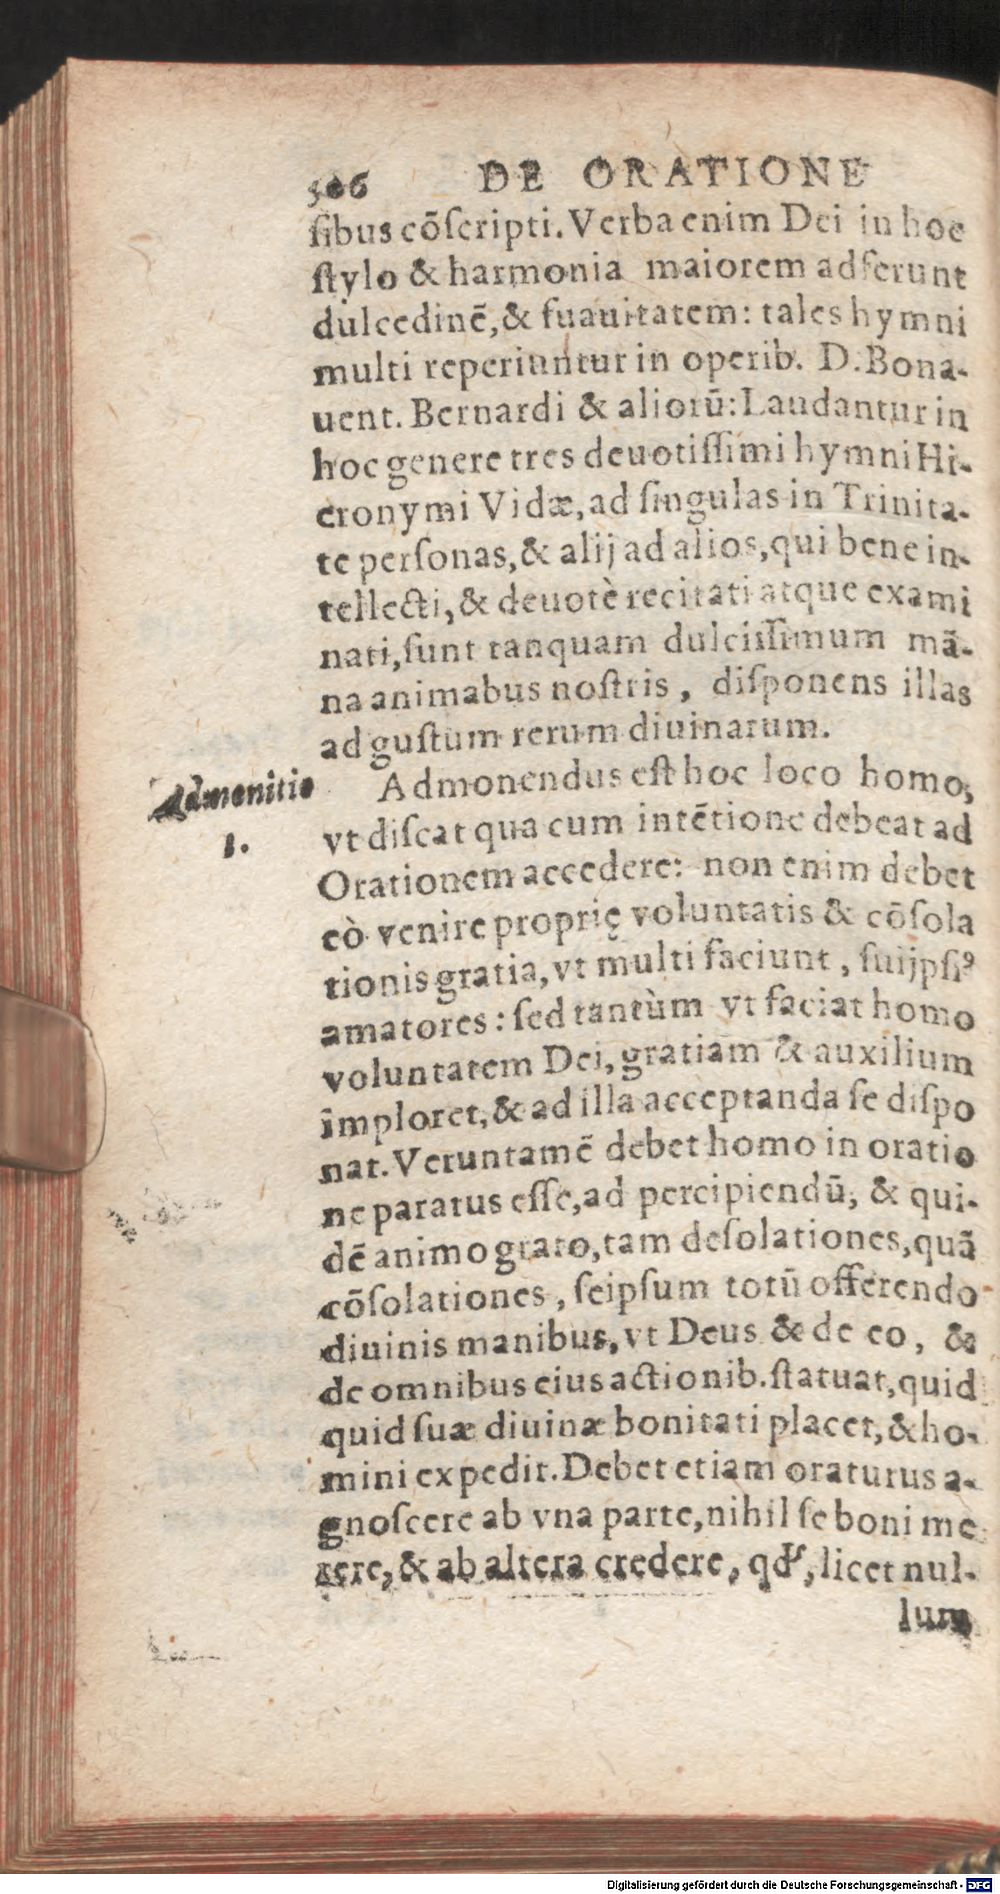 506 DE ORATIONE
ſibus cõſcripti. Verba enim Dei in hoc
ſtylo & harmonia maiorem adferunt
dulcedinẽ, & ſuauitatem: tales hymni
multi reperiuntur in operib. D. Bona-
uent. Bernardi & aliorũ: Laudantur in
hoc genere tres deuotiſſimi hymni Hi-
eronymi Vidæ, ad ſingulas in Trinita-
te perſonas, & alij ad alios, qui bene in-
tellecti, & deuotè recitati atque exami
nati, ſunt tanquam dulciſſimum mã-
na animabus noſtris, diſponens illas
ad guſtum rerum diuinarum.
Admonitio
1.
Admonendus eſt hoc loco homo,
vt diſcat qua cum intẽtione debeat ad
Orationem accedere: non enim debet
eò venire proprię voluntatis & cõſola
tionis gratia, vt multi faciunt, ſuijpſiꝰ
amatores: ſed tantùm vt faciat homo
voluntatem Dei, gratiam & auxilium
imploret, & ad illa acceptanda ſe diſpo
nat. Veruntamẽ debet homo in oratio
ne paratus eſſe, ad percipiendũ, & qui-
dẽ animo grato, tam deſolationes, quã
cõſolationes, ſeipſum totũ offerendo
diuinis manibus, vt Deus & de eo, &
de omnibus eius actionib. ſtatuat, quid
quid ſuæ diuinæ bonitati placet, & ho-
mini expedit. Debet etiam oraturus a-
gnoſcere ab vna parte, nihil ſe boni me
rere, & ab altera credere, qd, licet nul-
lum
Digitalisierung gefördert durch die Deutsche Forschungsgemeinschaft - DFG